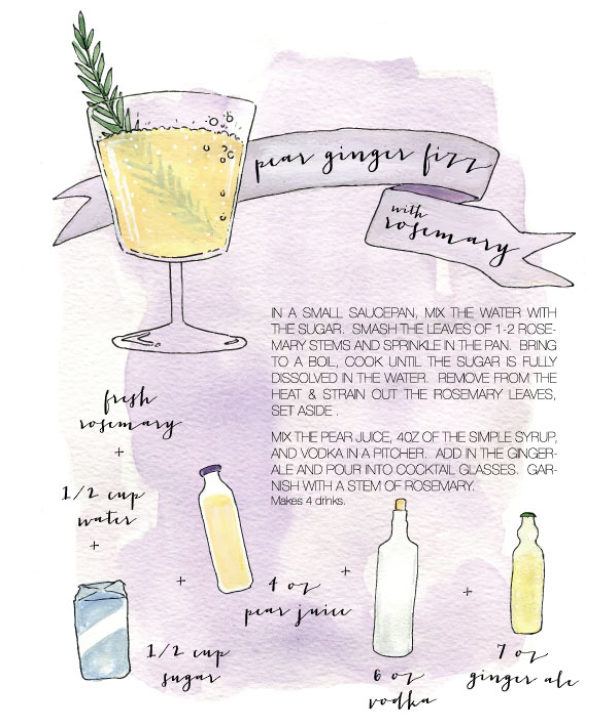 pear ginger fizz
with
rosemary
IN A SMALL SAUCEPAN, MIX THE WATER WITH
THE SUGAR. SMASH THE LEAVES OF 1-2 ROSE-
MARY STEMS AND SPRINKLE IN THE PAN. BRING
TO A BOIL, COOK UNTIL THE SUGAR IS FULLY
DISSOLVED IN THE WATER. REMOVE FROM THE
HEAT & STRAIN OUT THE ROSEMARY LEAVES,
SET ASIDE .
MIX THE PEAR JUICE, 4OZ OF THE SIMPLE SYRUP,
AND VODKA IN A PITCHER. ADD IN THE GINGER-
ALE AND POUR INTO COCKTAIL GLASSES. GAR-
NISH WITH A STEM OF ROSEMARY.
Makes 4 drinks.
fresh
rosemary
+
1/2 cup
water
+
1/2 cup
sugar
+
4 oz
pear juice
+
6 oz
vodka
+
7 oz
ginger ale